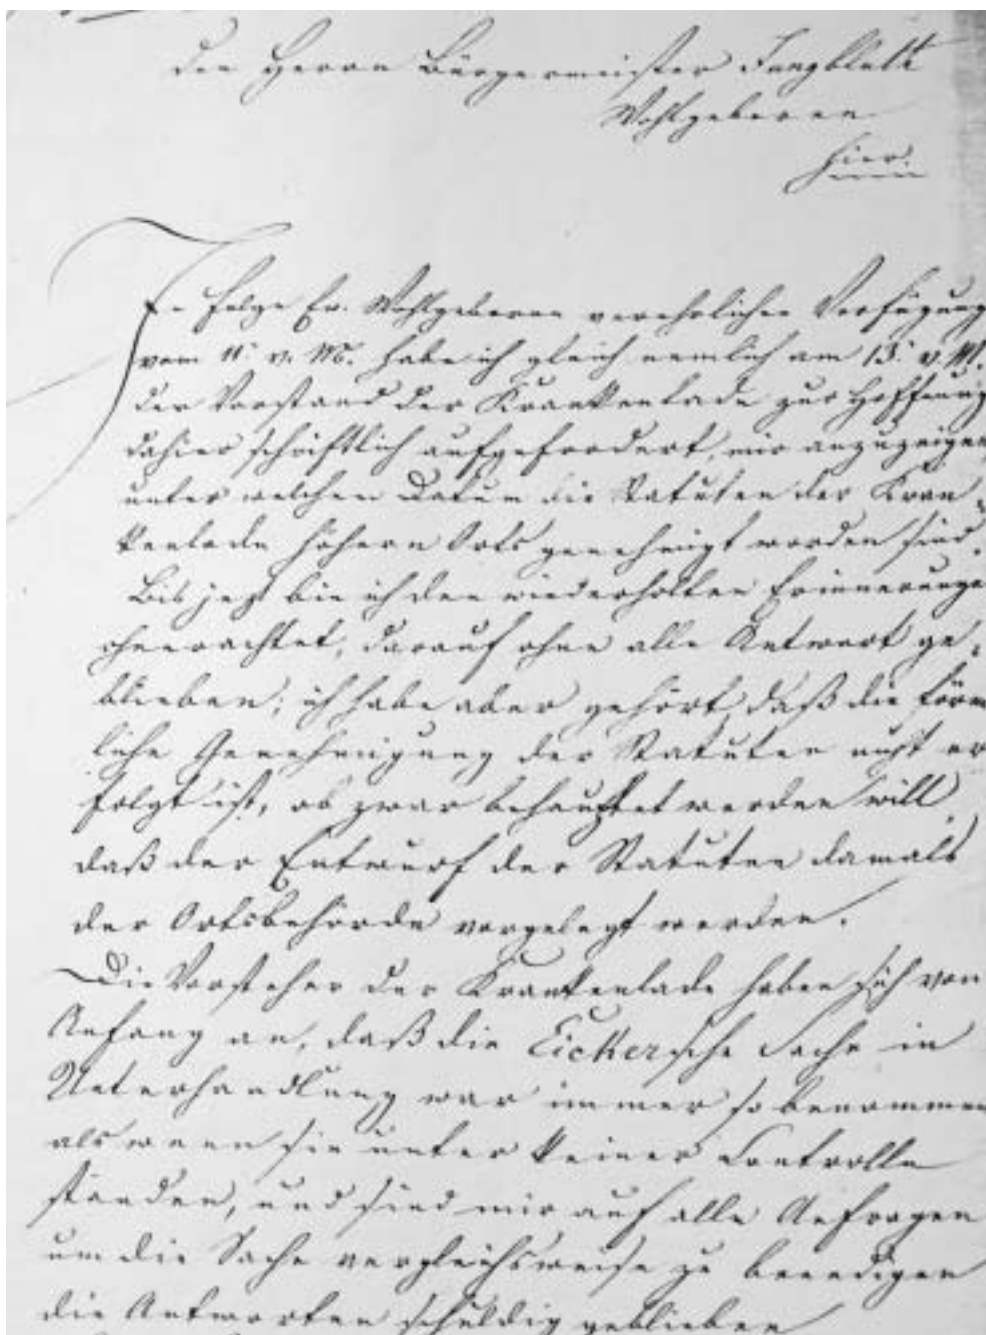 den Herrn Bürgermeister Jungblutt
Wohlgeboren
hier
In Folge Ew. Wohlgeboren verehrlicher Verfügung
vom 11. v. M. habe ich gleich nemlich am 13. v. M.
den Vorstand der Krankenlade zur Hoffnung
dahier schriftlich aufgefordert, mir anzuzeigen
unter welchem Datum die Statuten der Kran-
kenlade höhern Orts genehmigt worden sind.
Bis jezt bin ich den wiederholten Erinnerungen
ohnerachtet, darauf ohne alle Antwort ge-
blieben; ich habe aber gehört, daß die förm
liche Genehmigung der Statuten nicht er
folgt ist, ob zwar behauptet werden will,
daß der Entwurf der Statuten damals
der Ortsbehörde vorgelegt worden.
Die Vorsteher der Krankenlade haben sich von
Anfang an, daß die Eickersche Sache in
Unterhandlung war immer so benommen
als wenn sie unter keiner Controlle
ständen, und sind mir auf alle Anfragen
um die Sache vergleichsweise zu beendigen
die Antworten schuldig geblieben